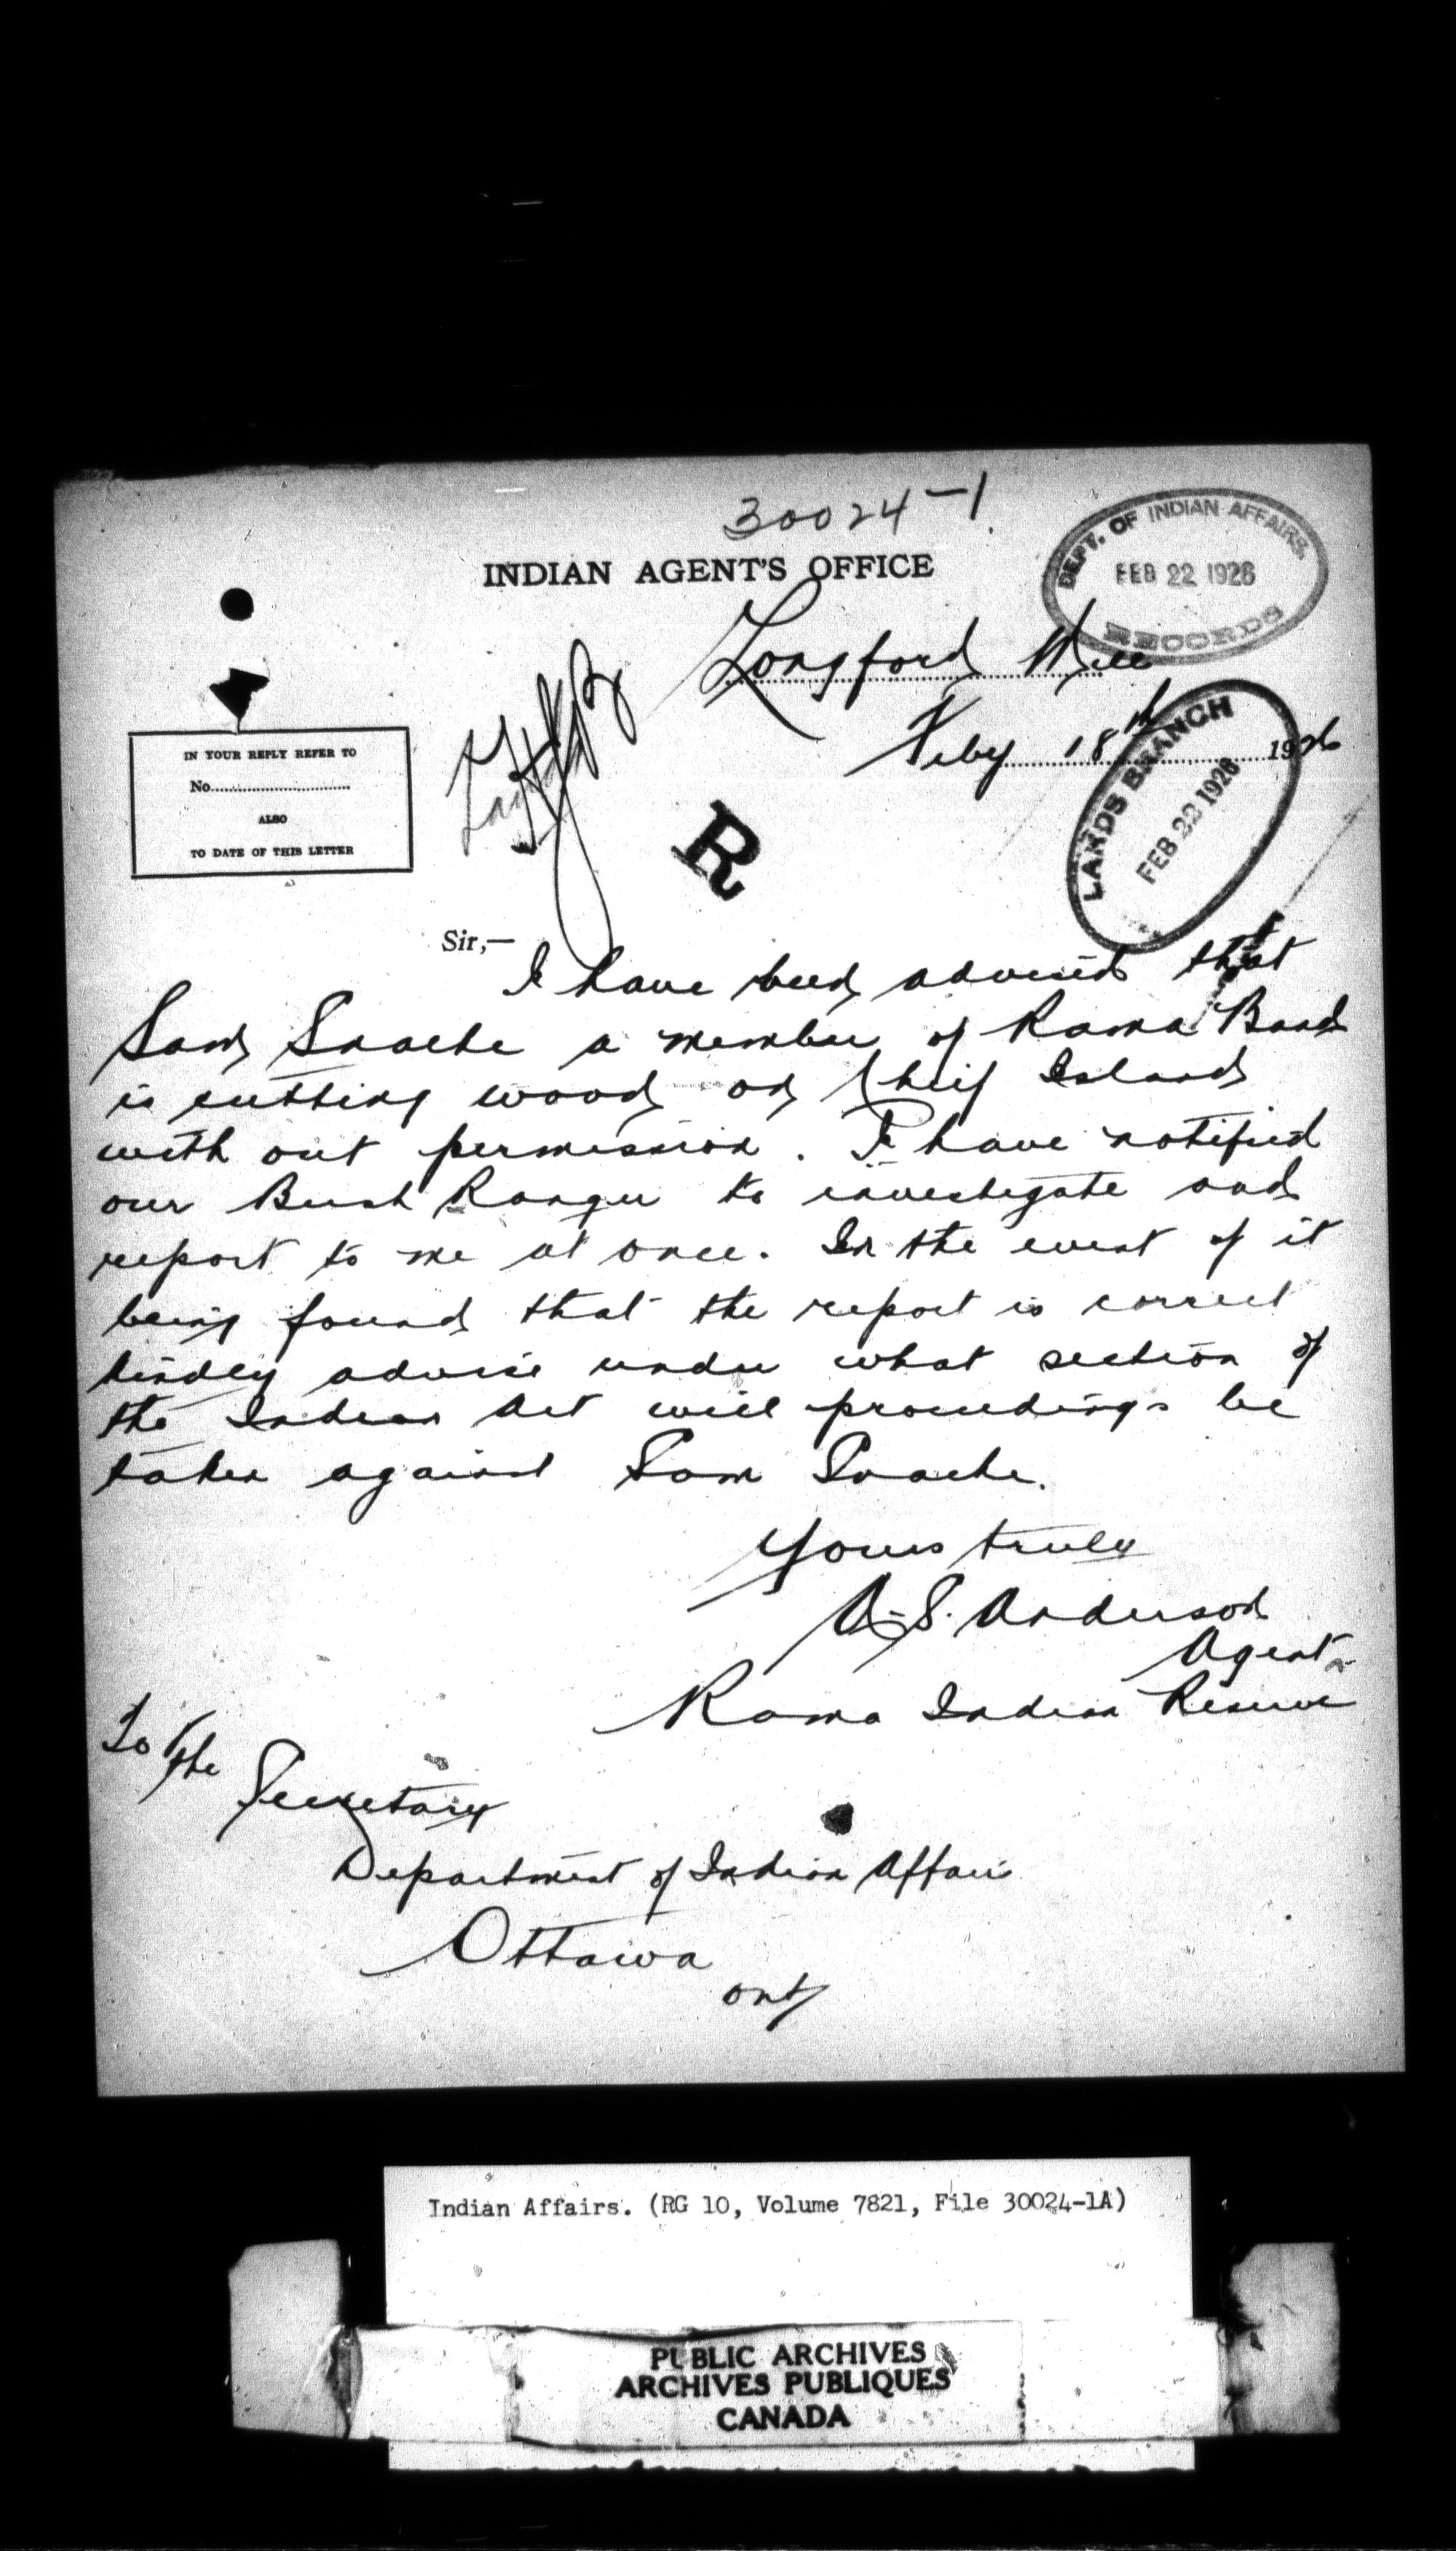 30024-1
INDIAN AGENT'S OFFICE
DEPT. OF INDIAN AFFAIRS
FEB 22 1926
RECORDS
Longford Mill
Feby 18th 1926
LANDS BRANCH
FEB 22 1926
IN YOUR REPLY REFER TO
No.
ALSO
TO DATE OF THIS LETTER
R
Sir,—
I have been advised that
Sam Snache a member of Rama Band
is cutting wood on Cheif Island
with out permission. I have notified
our Bush Ranger to investigate and
report to me at once. In the event of it
being found that the report is correct
kindly advise under what section of
the Indian Act will proceedings be
taken against Sam Snache.
Yours truly
A. S. Anderson
Agent
Rama Indian Reserve
To the
Secretary
Department of Indian Affairs
Ottawa
Ont
Indian Affairs. (RG 10, Volume 7821, File 30024-1A)
PUBLIC ARCHIVES
ARCHIVES PUBLIQUES
CANADA